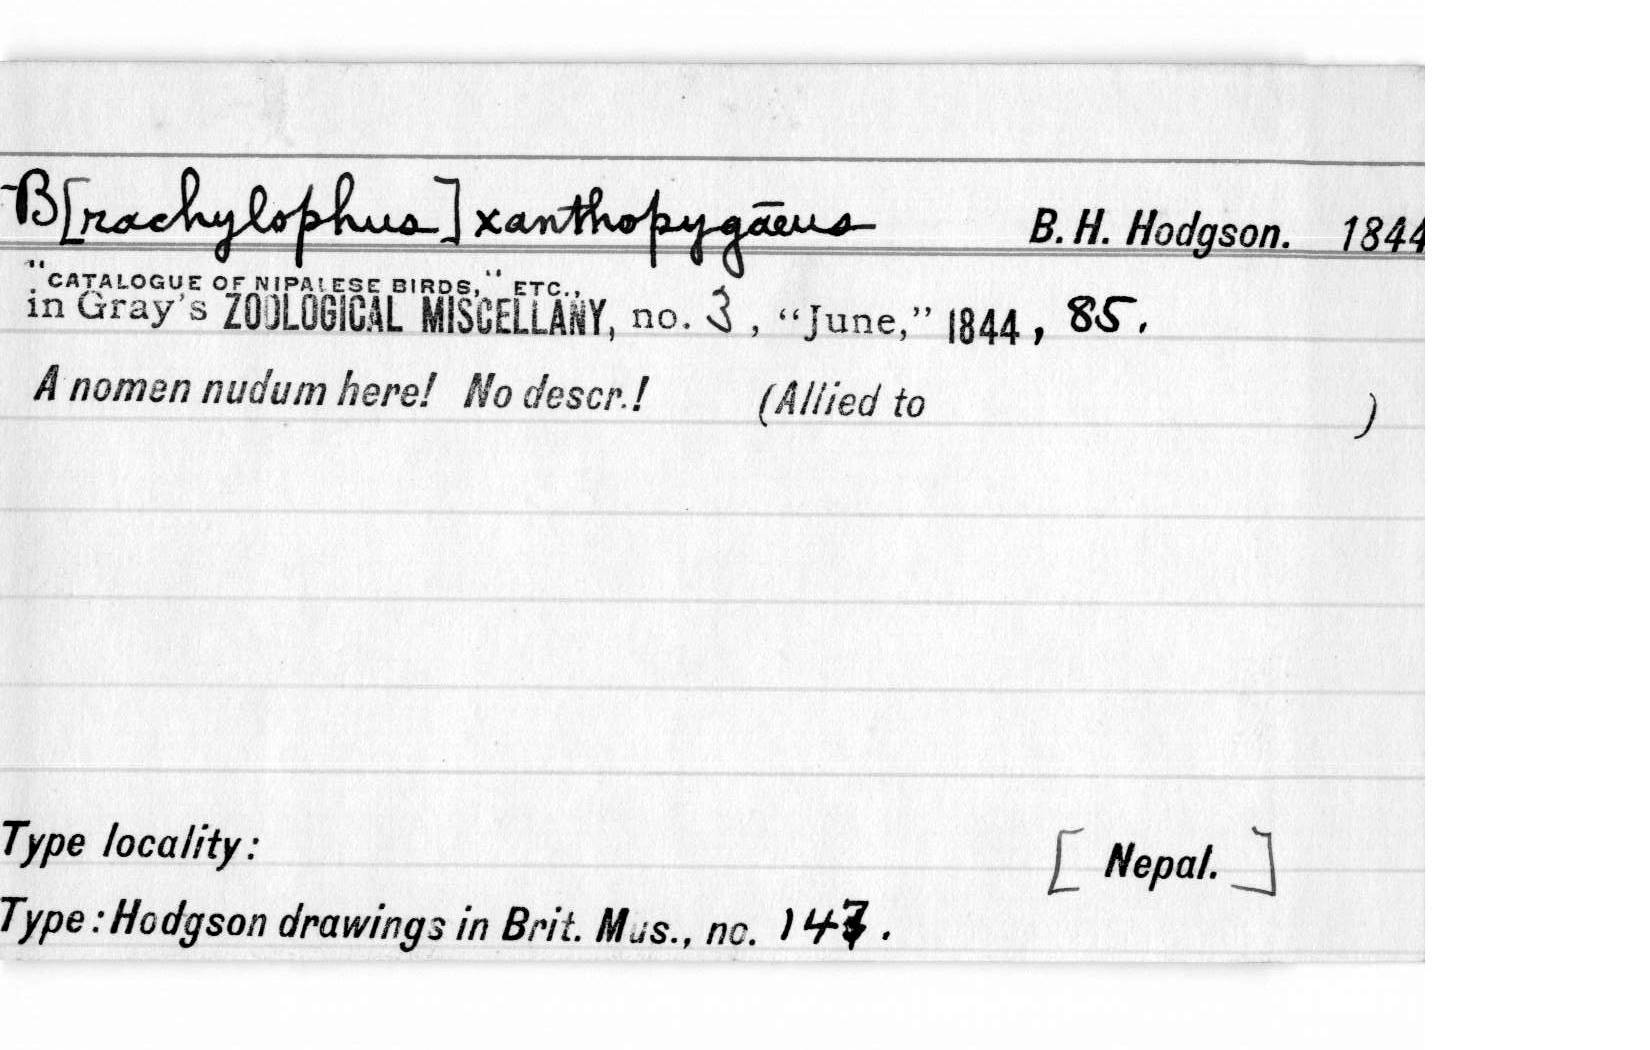 B[rachylophus] xanthopygāeus B. H. Hodgson. 1844
"CATALOGUE OF NIPALESE BIRDS," ETC.,
in Gray's ZOOLOGICAL MISCELLANY, no. 3, "June," 1844, 85.
A nomen nudum here! No descr.! (Allied to )
Type locality: [Nepal.]
Type: Hodgson drawings in Brit. Mus., no. 147.